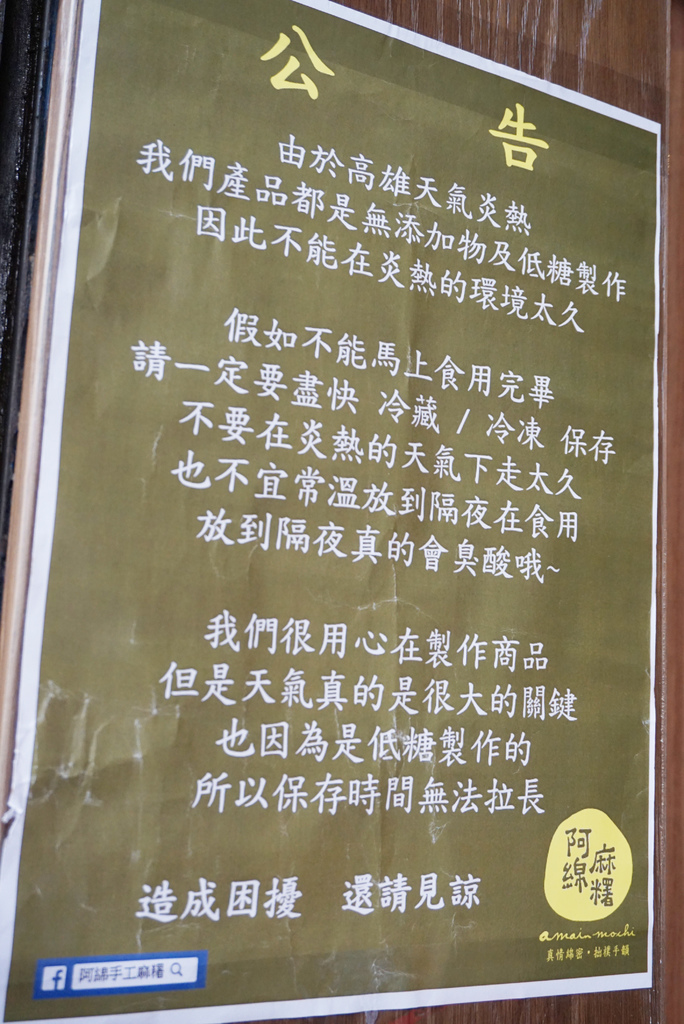 公告
由於高雄天氣炎熱
我們產品都是無添加物及低糖製作
因此不能在炎熱的環境太久
假如不能馬上食用完畢
請一定要盡快 冷藏 / 冷凍 保存
不要在炎熱的天氣下走太久
也不宜常溫放到隔夜在食用
放到隔夜真的會臭酸哦~
我們很用心在製作商品
但是天氣真的是很大的關鍵
也因為是低糖製作的
所以保存時間無法拉長
造成困擾 還請見諒
阿綿
麻糬
amain mochi
真情綿密·拙樸手韻
f 阿綿手工麻糬